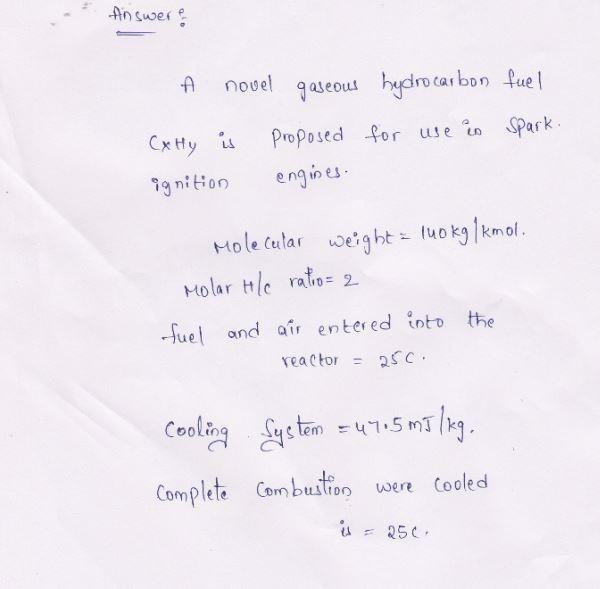 Answer:
A novel gaseous hydrocarbon fuel
CxHy is proposed for use in Spark.
ignition engines.
Molecular weight = 140kg/kmol.
Molar H/c ratio = 2
fuel and air entered into the
reactor = 25C.
Cooling System = 47.5 mJ/kg.
Complete Combustion were cooled
is = 25C.